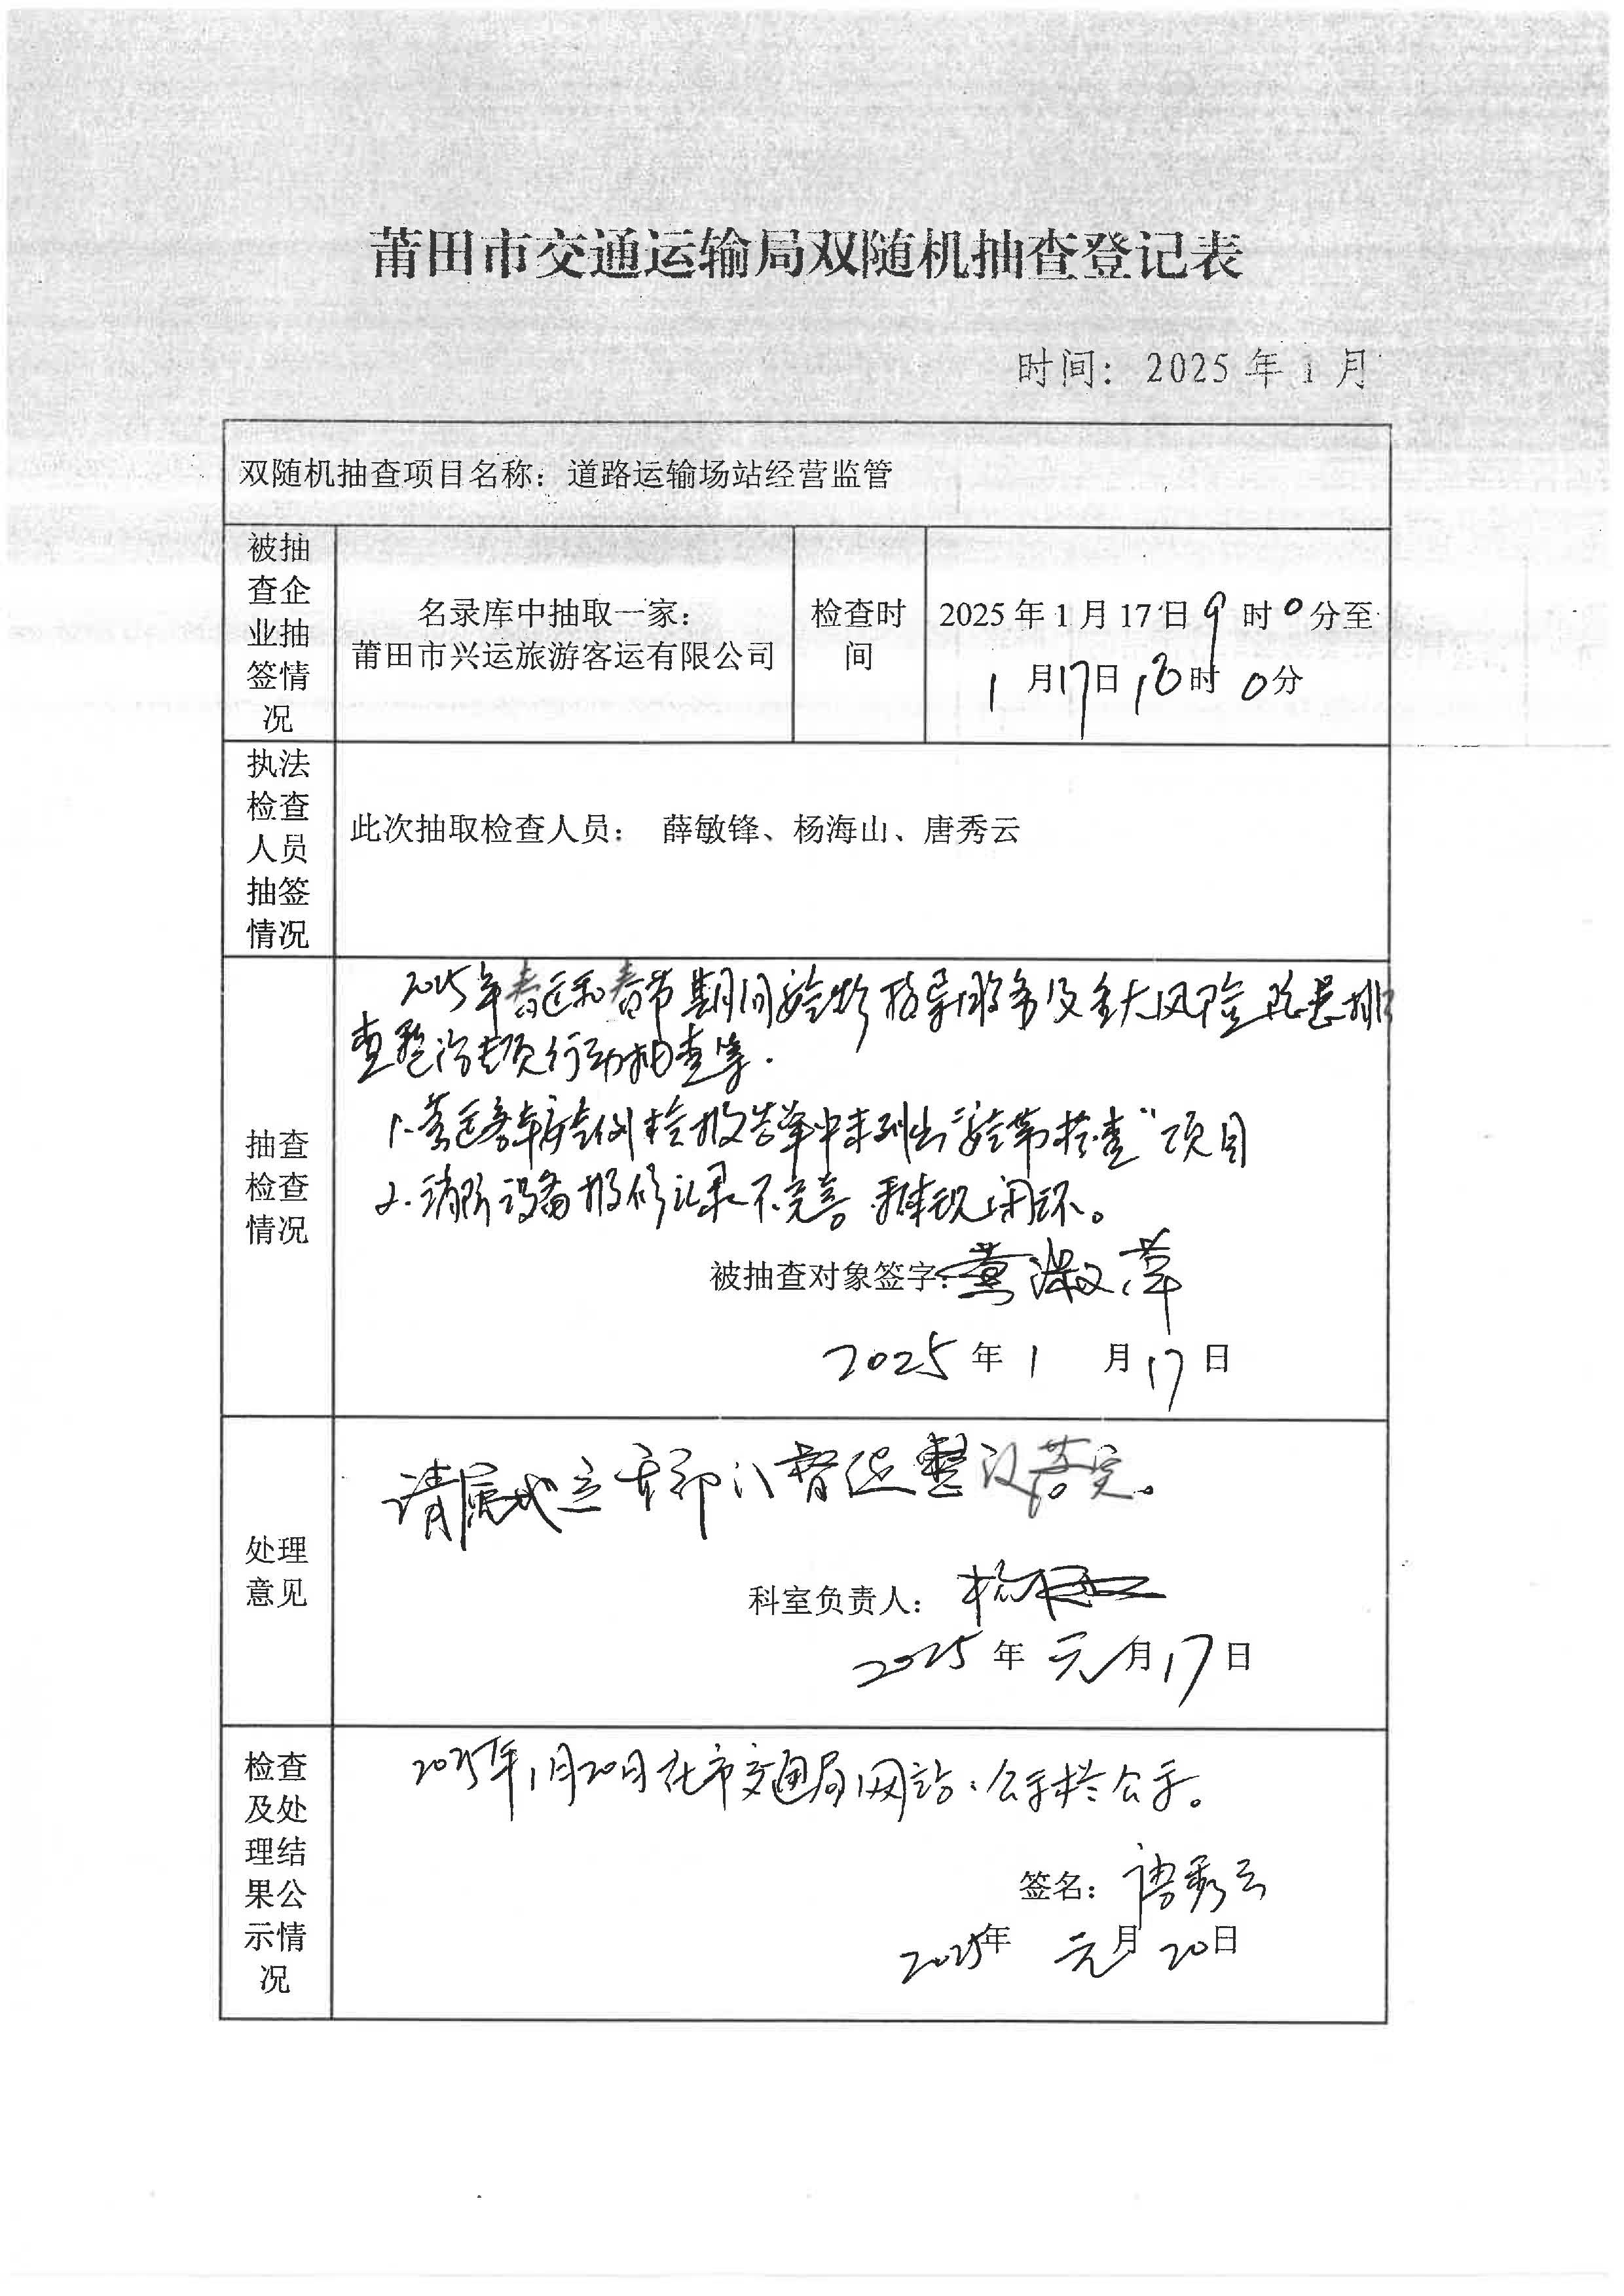 莆田市交通运输局双随机抽查登记表
时间：2025年1月
双随机抽查项目名称：道路运输场站经营监管
被抽
查企
业抽
签情
况
名录库中抽取一家：
莆田市兴运旅游客运有限公司
检查时
间
2025年1月17日9时0分至
1月17日18时0分
执法
检查
人员
抽签
情况
此次抽取检查人员： 薛敏锋、杨海山、唐秀云
抽查
检查
情况
2025年春运和春节期间安全生产指导服务及重大风险隐患排
查整治专项行动抽查等.
1.营运客车安全例检报告单中未列出"安全带检查"项目
2.消防设备报修记录不完善 未体现闭环。
被抽查对象签字：黄淑萍
2025年1月17日
处理
意见
请属地主管部门督促整改落实。
科室负责人：
2025年元月17日
检查
及处
理结
果公
示情
况
2025年1月20日在市交通局网站：公示栏公示。
签名：唐秀云
2025年元月20日